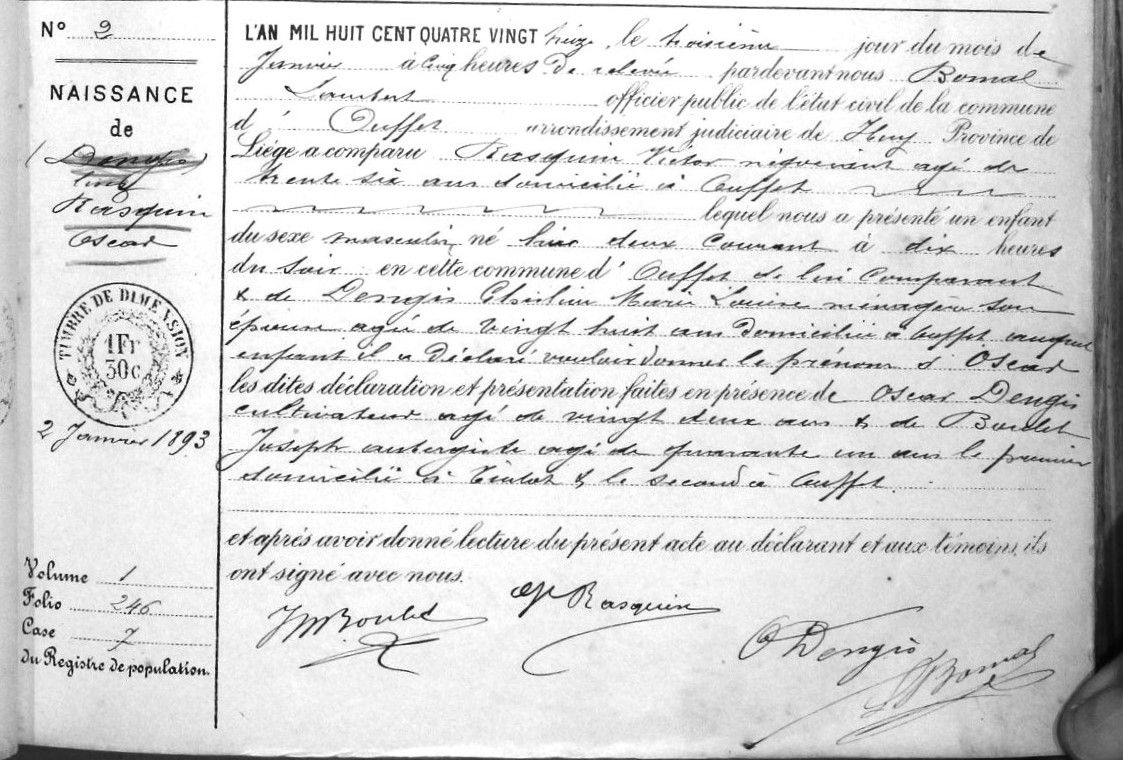 N° 2
NAISSANCE
de
Rasquin
Oscar
TIMBRE DE DIMENSION
1Fr
30c
2 Janvier 1893
Volume 1
Folio 246
Case 7
du Registre de population.
L'AN MIL HUIT CENT QUATRE VINGT treize, le troisième jour du mois de
Janvier à cinq heures de relevée pardevant nous Bomal
Lambert officier public de l'état civil de la commune
d' Ouffet arrondissement judiciaire de Huy Province de
Liége a comparu Rasquin Victor négociant agé de
trente six ans domicilié à Ouffet
lequel nous a présenté un enfant
du sexe masculin, né hier deux courant à dix heures
du soir en cette commune d' Ouffet de lui comparant
& de Dengis Ghislin Marie Louise ménagère son
épouse agée de vingt huit ans domiciliée à Ouffet auquel
enfant il a déclaré vouloir donner le prénom d'Oscar
les dites déclaration et présentation faites en présence de Oscar Dengis
cultivateur agé de vingt deux ans & de Boulet
Joseph aubergiste agé de quarante un ans le premier
domicilié à Tinlot & le second à Ouffet.
et aprés avoir donné lecture du présent acte au déclarant et aux témoins, ils
ont signé avec nous.
Rasquin
O Dengis
Bomal